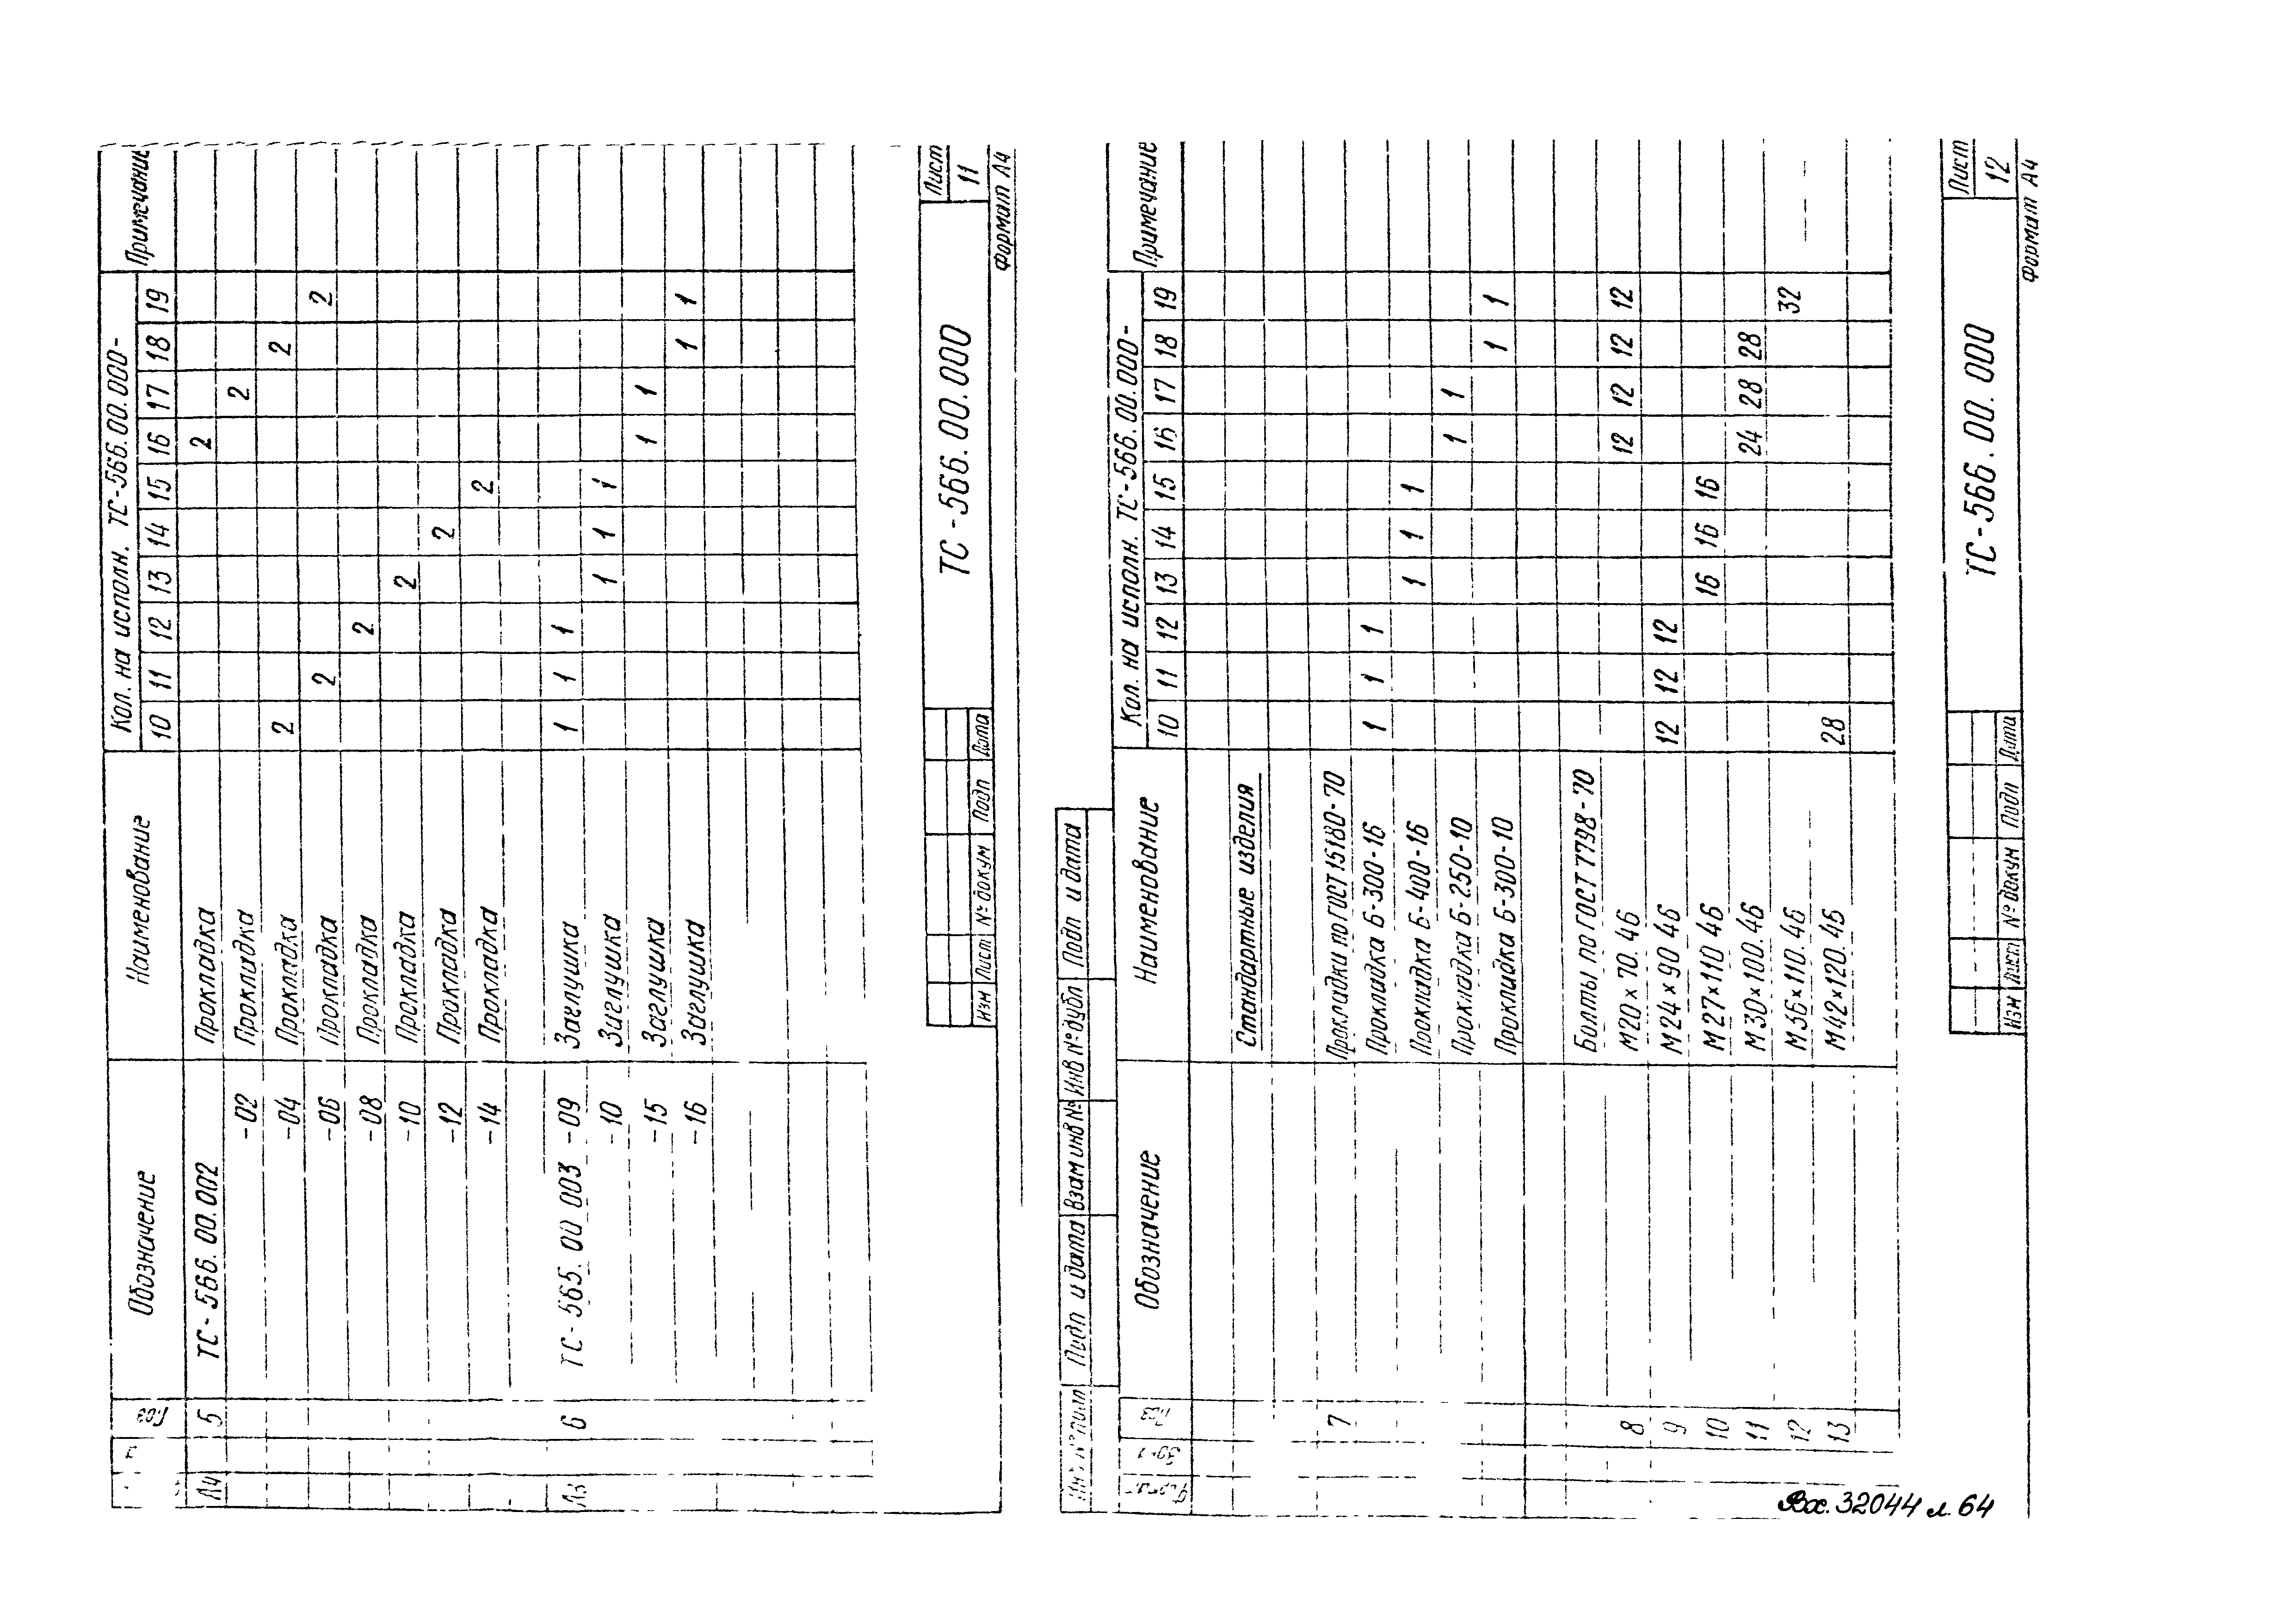 Обозначение Наименование Кол. на исполн. ТС-566.00.000- Примечание
Поз 10 11 12 13 14 15 16 17 18 19
А4 5 ТС-566.00.002 Прокладка 2
-02 Прокладка 2
-04 Прокладка 2 2
-06 Прокладка 2 2
-08 Прокладка 2
-10 Прокладка 2
-12 Прокладка 2
-14 Прокладка 2
А3 6 ТС-565.00 003 -09 Заглушка 1 1 1
-10 Заглушка 1 1 1
-15 Заглушка 1 1
-16 Заглушка 1 1
ТС-566.00.000
Лист
11
Изм Лист № докум Подп Дата
Формат А4
Инв № подл Подп и дата Взам инв № Инв № дубл Подп и дата
Обозначение Наименование Кол. на исполн. ТС-566.00.000- Примечание
Формат Зона Поз 10 11 12 13 14 15 16 17 18 19
Стандартные изделия
7 Прокладки по ГОСТ 15180-70
Прокладка Б-300-16 1 1 1
Прокладка Б-400-16 1 1 1
Прокладка Б-250-10 1 1
Прокладка Б-300-10 1 1
Болты по ГОСТ 7798-70
8 М20×70.46 12 12 12 12
9 М24×90 46 12 12 12
10 М27×110 46 16 16 16
11 М30×100.46 24 28 28
12 М36×110.46 32
13 М42×120.46 28
ТС-566.00.000
Лист
12
Изм Лист № докум Подп Дата
Формат А4
Вх. 32044 л. 64